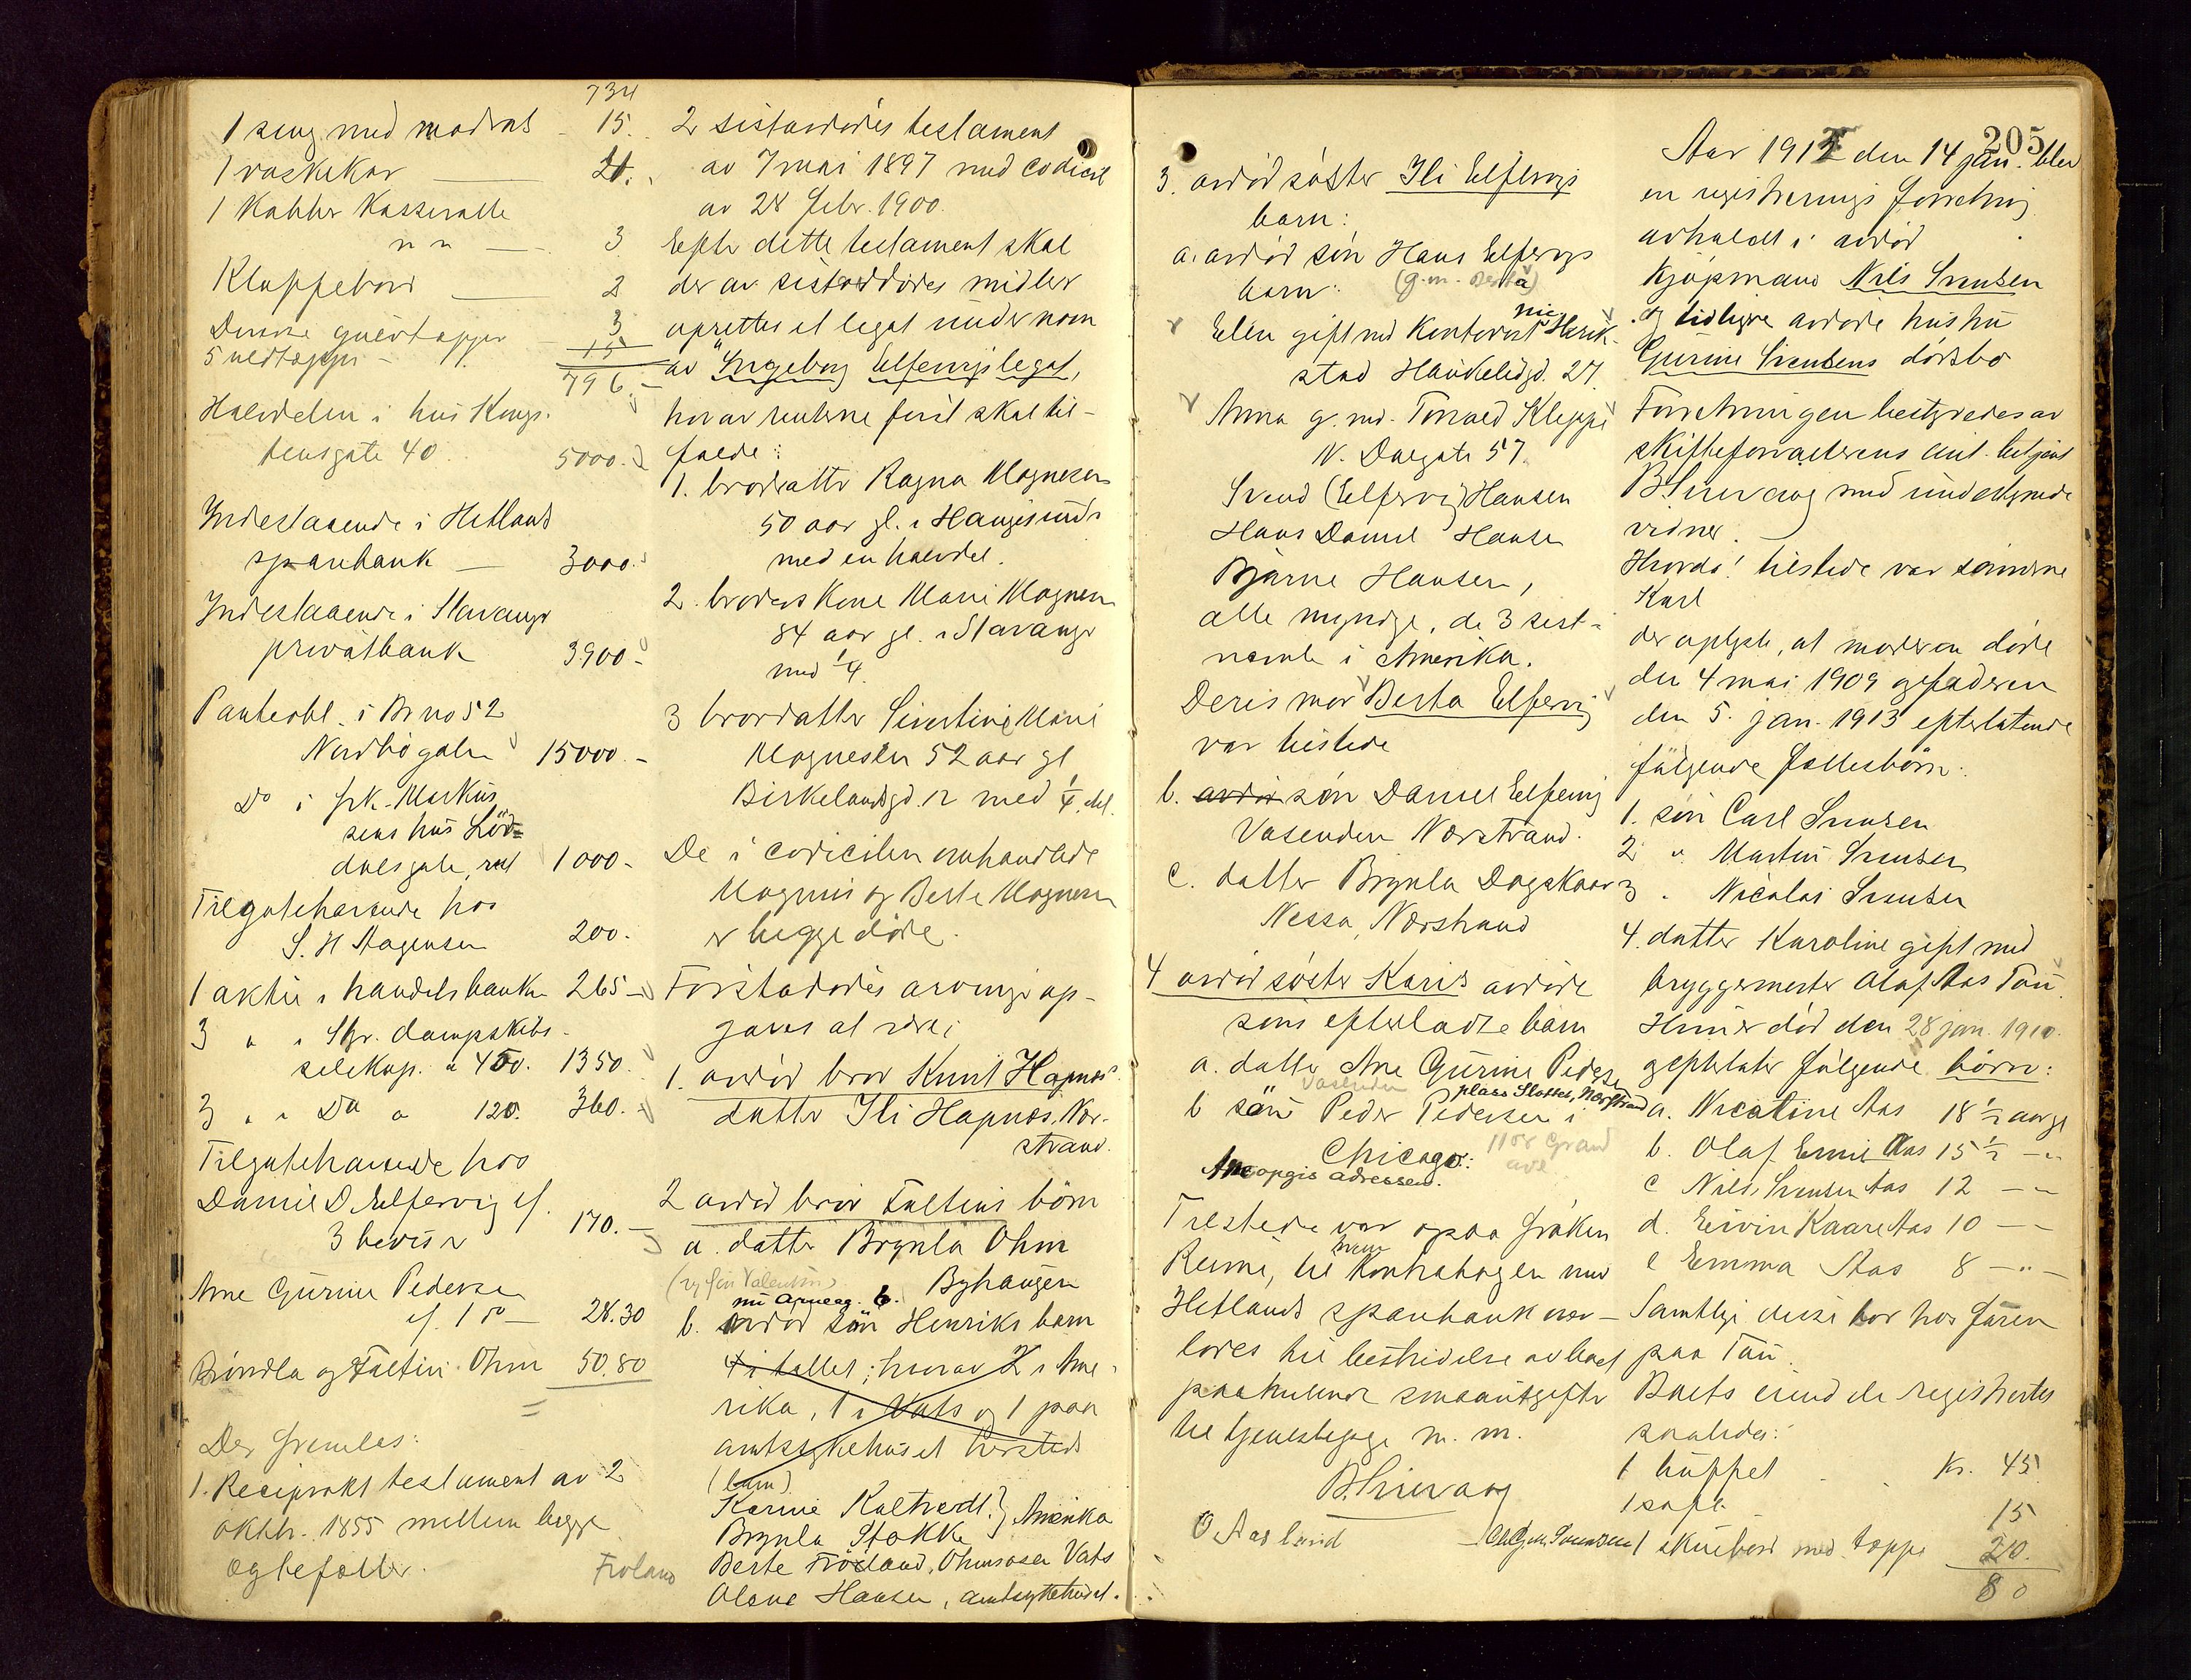 734
1 seng med madras - 15.
1 vaskekar — 21.
1 Kobber Kasserolle
" " — 3
Klappebord — 2
Diverse gulvtepper 3
5 uldtæppe - 15
796.-
Halvdelen i hus Kongs-
tensgate 40. 5000.
Indestaaende i Hetlands
sparebank — 3000.
Indestaaende i Stavanger
privatbank 3900-
Panteobl. i Br no 52
Nordbøgaten 15000.-
Do i frk. Markus
sens hus Lød-
dalsgate, 1000-
Tilgodehavende hos
S. H Aagensen 200.
1 aktie i handelsbanken 265-
3 " i Stgr. dampskibs-
selskap. a 450. 1350.
3 " " Do a 120. 360.-
Tilgodehavende hos
Daniel D. Elfervig ef.
3 beviser 170.-
Ane Gurine Pedersen
ef. 1 Do - 28.30
Bründla og Faltin Ohm 50.80
=
Der fremlas:
1. Reciprokt testament av 2
oktbr. 1855 mellem begge
egtefæller.
2 sistavdødes testament
av 7 mai 1897 med codicil
av 28 febr. 1900.
Efter dette testament skal
der av sistavdødes midler
oprettes et legat under navn
av "Ingeborg Elfervigs legat,
hvorav renterne først skal til-
falde:
1. brordatter Ragna Magnesen
50 aar gl. i Haugesund
med en halvdel.
2. broders kone Marie Magnesen
84 aar gl. i Stavanger
med 1/4
3 brordatter Sivertine Marie
Magnesen 52 aar gl
Birkelandsgd. 12 med 1/4 del.
De i codicilen omhandlede
Magnus og Berte Magnesen
er begge døde.
Førstavdødes arvinger op-
gaves at være:
1. avdød bror Knut Hapnes
datter Ili Hapnes, Nor-
strand.
2 avdød bror Faltins børn
a. datter Brynla Ohm
(og søn Valentin) Byhaugen
nu Arneag. 6.
b. avdød søn Henriks barn
4 i tallet; hvorav 2 i Ame-
rika, 1 i Vats og 1 paa
amtssykehuset hersteds
(barn)
Karine Kaltvedt } Amerika
Brynla Stokke
Froland Berte Frøiland, Ohmsosen Vats
Olene Hansen, amtsykehuset.
205
3. avdød søster Ili Elfervigs
barn:
a. avdød søn Hans Elfervigs
barn: (g.m. Berta)
Elen gift med Kontorist Henrik-
stad Haukeligd. 27.
Anna g. m. Torvald Kleppe
N. Dalgate 57.
Svend (Elfervig) Hansen
Hans Daniel Hansen
Bjarne Hansen,
alle myndige, de 3 sist-
nævnte i Amerika.
Deres mor Berta Elfervig
var tilstede
b. avdød søn Daniel Elfervig
Vasenden Norstrand.
c. datter Brynla Dagskaar
Nessa, Norstrand
4 avdød søster Karis avdøde
søns efterladte barn
a. datter Ane Gurine Pedersen
Vasenden plass Slottet, Norstrand
b søn Peder Pedersen i
Chicago: 1108 Grand
Ane opgir adressen. ave
Tilstede var ogsaa frøken
Reime, til hvem Kontrabogen med
Hetlands sparebank over-
lores til bestridelse av boet
paakommende smaautgifter
til tjenestepige m. m.
B. Sirevaag
O Aasland
Aar 1913 den 14 jan. blev
en registrerings forretning
avholdt i avdød
Kjøpmand Nils Svensen
og tidligere avdøde hustru
Gurine Svensens dødsbo
Forretningen bestyredes av
skifteforvalterens aut. betjent
B Sirevaag med undertegnede
vidner.
Hvorda! tilstede var sønnerne
Karl
der oplyste, at moderen døde
den 4 mai 1909 og faderen
den 5. jan. 1913 efterlatende
følgende fællesbørn:
1. søn Carl Svensen
2 " Martin Svensen
3 " Nicolai Svensen
4. datter Karoline gift med
bryggermester Olaf Aas Tau
Hun er død den 28 jan. 1910.
og efterlater følgende børn:
a. Nicoline Aas 18 1/2 aar gl
b. Olaf Emil Aas 15 1/2 -"-
c Nils Svensen Aas 12 -"-
d. Eivin Kaare Aas 10 -"-
e Emma Aas 8 -"-
Samtlige disse bor hos faren
paa Tau.
Boets eiendele registrertes
saaledes:
1 buffet kr. 45
1 sofa 15
1 skrivebord med tæppe 20.
80